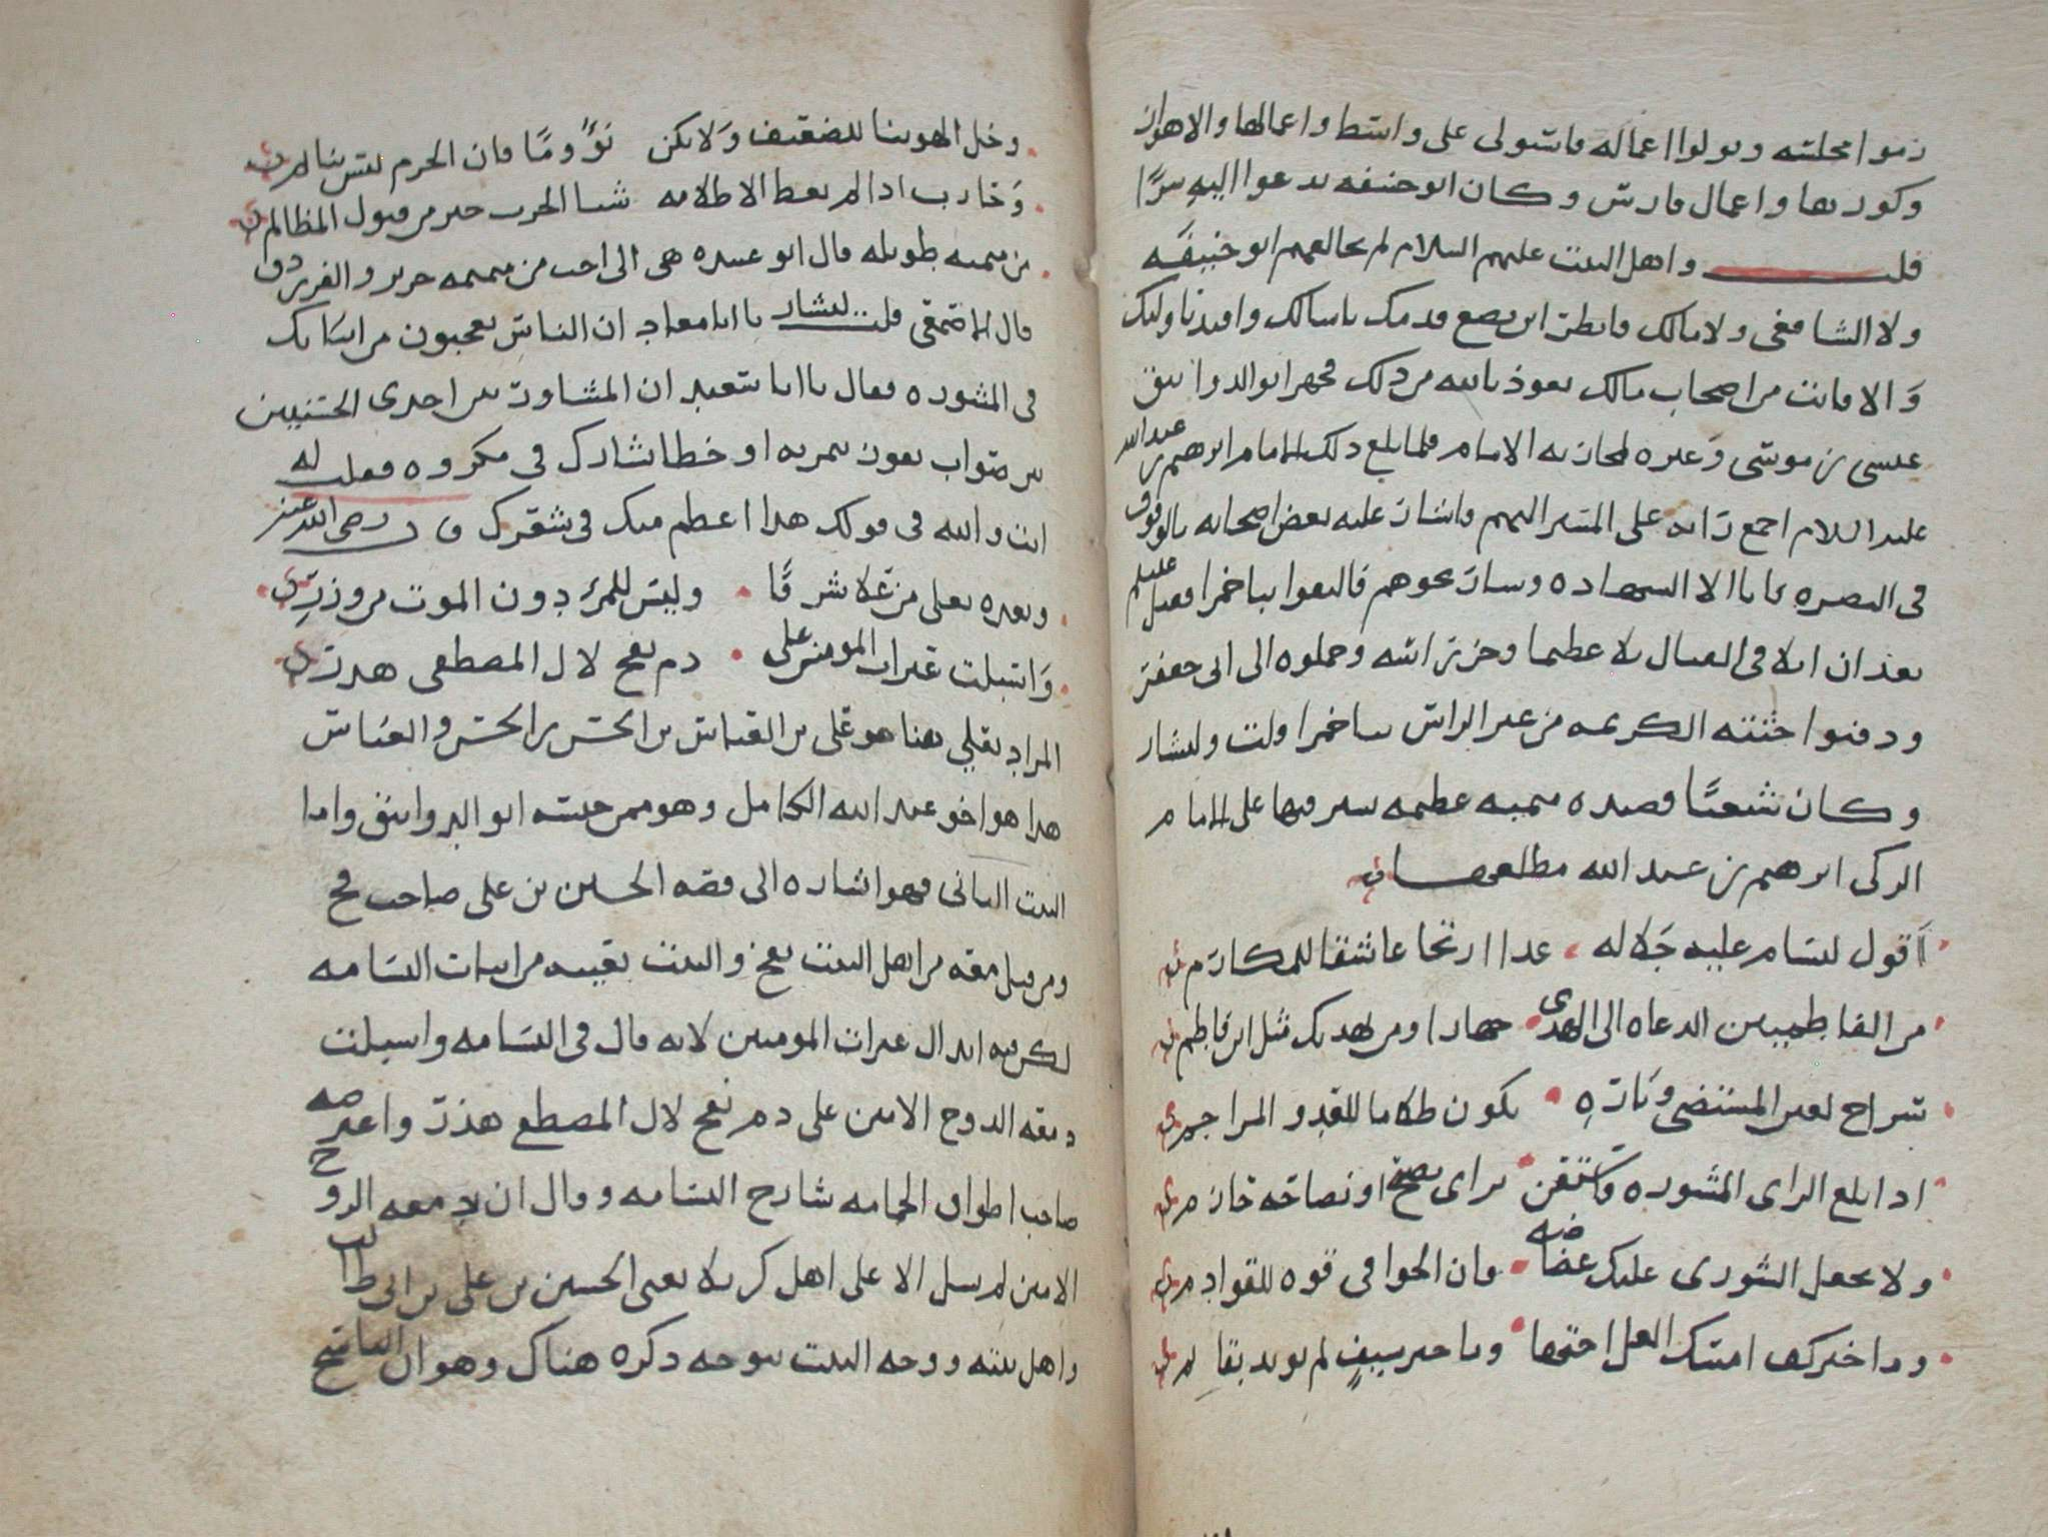 زموا محلته وتولوا اعماله فاستولى على واسط واعمالها والاهواز
وكورتها واعمال فارس وكان ابو حنيفه يدعوا اليه سرًا
قلت واهل البيت عليهم السلام لم يخالفهم ابو حنيفه
ولا الشافعي ولا مالك فانظر اين يضع قدمك يا سالك وافيدنا وليك
والا فانت من اصحاب مالك نعوذ بالله من ذلك فجهز ابو الدوانيق
عيسى بن موسى وغيره لمحاربه الامام فلما بلغ ذلك الامام ابرهيم بن عبد الله
عليه السلام اجمع رايه على المسير اليهم واشار عليه بعض اصحابه بالوقوف
في البصره فابا الا الشهاده وسار نحوهم فالتقوا بباخمرا فقتل عليلم
بعد ان ابلا في القتال بلاء عظيما وحز راسه وحملوه الى ابي جعفر
ودفنوا جثته الكريمه من غير الراس بباخمرا قلت ولبشار
وكان شيعيًا قصيده ميميه عظيمه يشير فيها على الامام
الزكي ابرهيم بن عبد الله مطلعها
اقول لبسام عليه جلاله غدا اريحا عاشقا للمكارم
من الفاطميين الدعاه الى الهدى جهارا ومن يهديك مثل ابن فاطم
سراج لعين المستضي وتاره يكون ظلاما للعدو المزاحم
اذا بلغ الراي المشوره فاستعن براي نصيح او نصاحه حازم
ولا تجعل الشورى عليك غضاضه فان الخوافي قوه للقوادم
وما خير كف امسك الغل اختها وما خير سيف لم يويد بقايم
وخل الهوينا للضعيف ولا تكن نؤومًا فان الحزم ليس بنايم
وحارب اذا لم تعط الا ظلامه شبا الحرب خير من قبول المظالم
من ميميه طويله قال ابو عبيده هي الي احب من ميميه جرير والفرزدق
قال الاصمعي قلت لبشار يا ابا معاد ان الناس يعجبون من ابياتك
في المشوره فقال يا ابا سعيد ان المشاور بين احدى الحسنيين
بين صواب يفوز بثمرته او خطا يشارك في مكروه فقلت له
انت والله في قولك هذا اعظم منك في شعرك قال رضي الله عنه
وبعده بعلي من علا شرفًا وليس للمرء دون الموت من وزر
واسبلت عبرات المومنين على دم بفخ لال المصطفى هدر
المراد بعلي هنا هو علي بن العباس بن الحسن بن الحسن والعباس
هذا هو اخو عبد الله الكامل وهو ممن حبسه ابو الدوانيق واما
البيت الثاني فهو اشاره الى قصه الحسين بن علي صاحب فخ
ومن قتل معه من اهل البيت بفخ والبيت بعينه من ابيات البسامه
لكن فيه ابدال عبرات المومنين لانه قال في البسامه واسبلت
دمعه الروح الامين على دم بفخ لال المصطفى هدر واعترضه
صاحب اطواق الحمامه شارح البسامه وقال ان دمعه الروح
الامين لم تسل الا على اهل كربلا يعني الحسين بن علي بن ابي طالب
واهل بيته ووجه البيت بوجه ذكره هناك وهو ان الناسخ